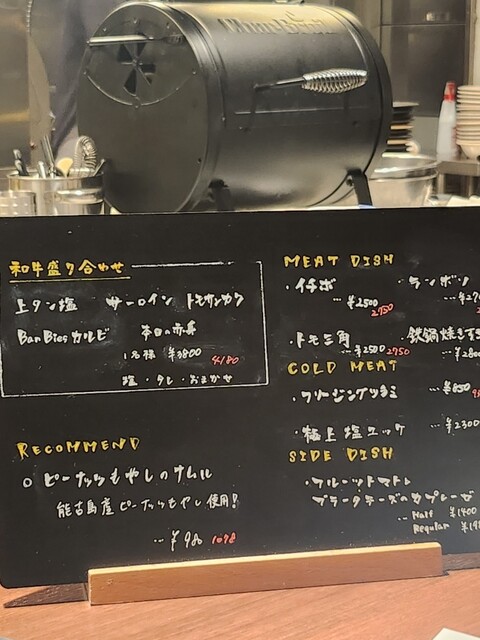 和牛盛り合わせ
上タン塩 サーロイン トモサンカク
BarBiesカルビ 本日の赤身
1名様 ¥3800 4180
塩・タレ・おまかせ
RECOMMEND
○ ピーナッツもやしのナムル
能古島産ピーナッツもやし使用!
… ¥980 1078
MEAT DISH
・イチボ
… ¥2500 2750
・ランボソ
・トモ三角
… ¥2500 2750
鉄鍋焼きすき
COLD MEAT
・クリージングツラミ … ¥850
・極上塩ユッケ … ¥2300
SIDE DISH
・フルーツトマト
ブラータチーズのカプレーゼ
… Half ¥1400
Regular